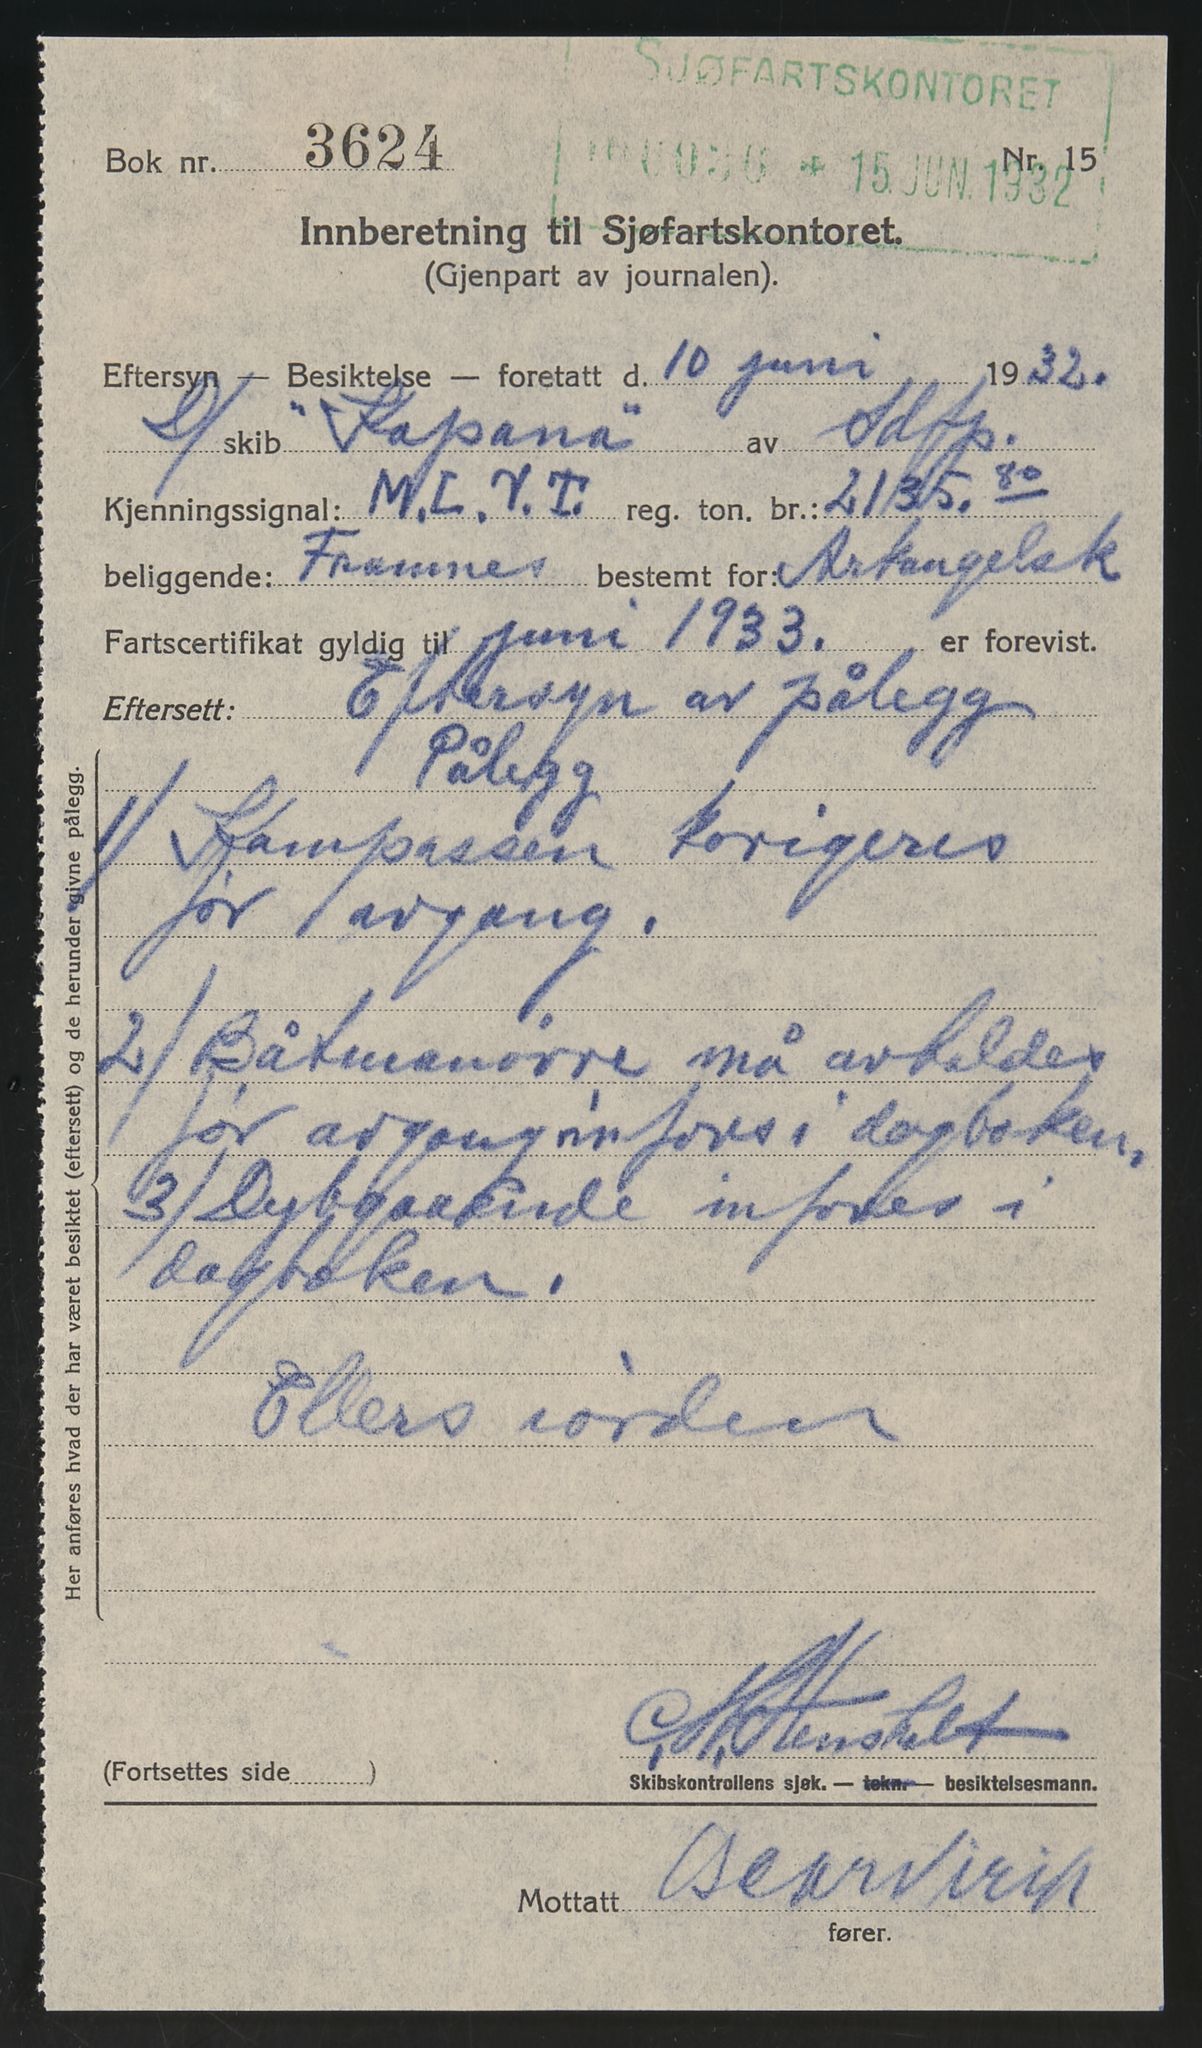 SJØFARTSKONTORET
Bok nr. 3624
15. JUN. 1932
Nr. 15
Innberetning til Sjøfartskontoret.
(Gjenpart av journalen).
Eftersyn — Besiktelse — foretatt d. 10 juni 1932.
D/ skib "Kapana" av Sdfjp.
Kjenningssignal: M.L.V.T. reg. ton. br.: 2135.80
beliggende: Framnes bestemt for: Arkangelsk
Fartscertifikat gyldig til juni 1933. er forevist.
Eftersett: Eftersyn av pålegg
Pålegg
1/ Kompassen korigeres
før avgang.
2/ Båtmanøvre må avholdes
før avgang innføres i dagboken.
3/ Dybgaaende inføres i
dagboken.
Ellers iorden
Her anføres hvad der har været besiktet (eftersett) og de herunder givne pålegg.
(Fortsettes side )
Skibskontrollens sjøk. — tekn. — besiktelsesmann.
Mottatt
fører.